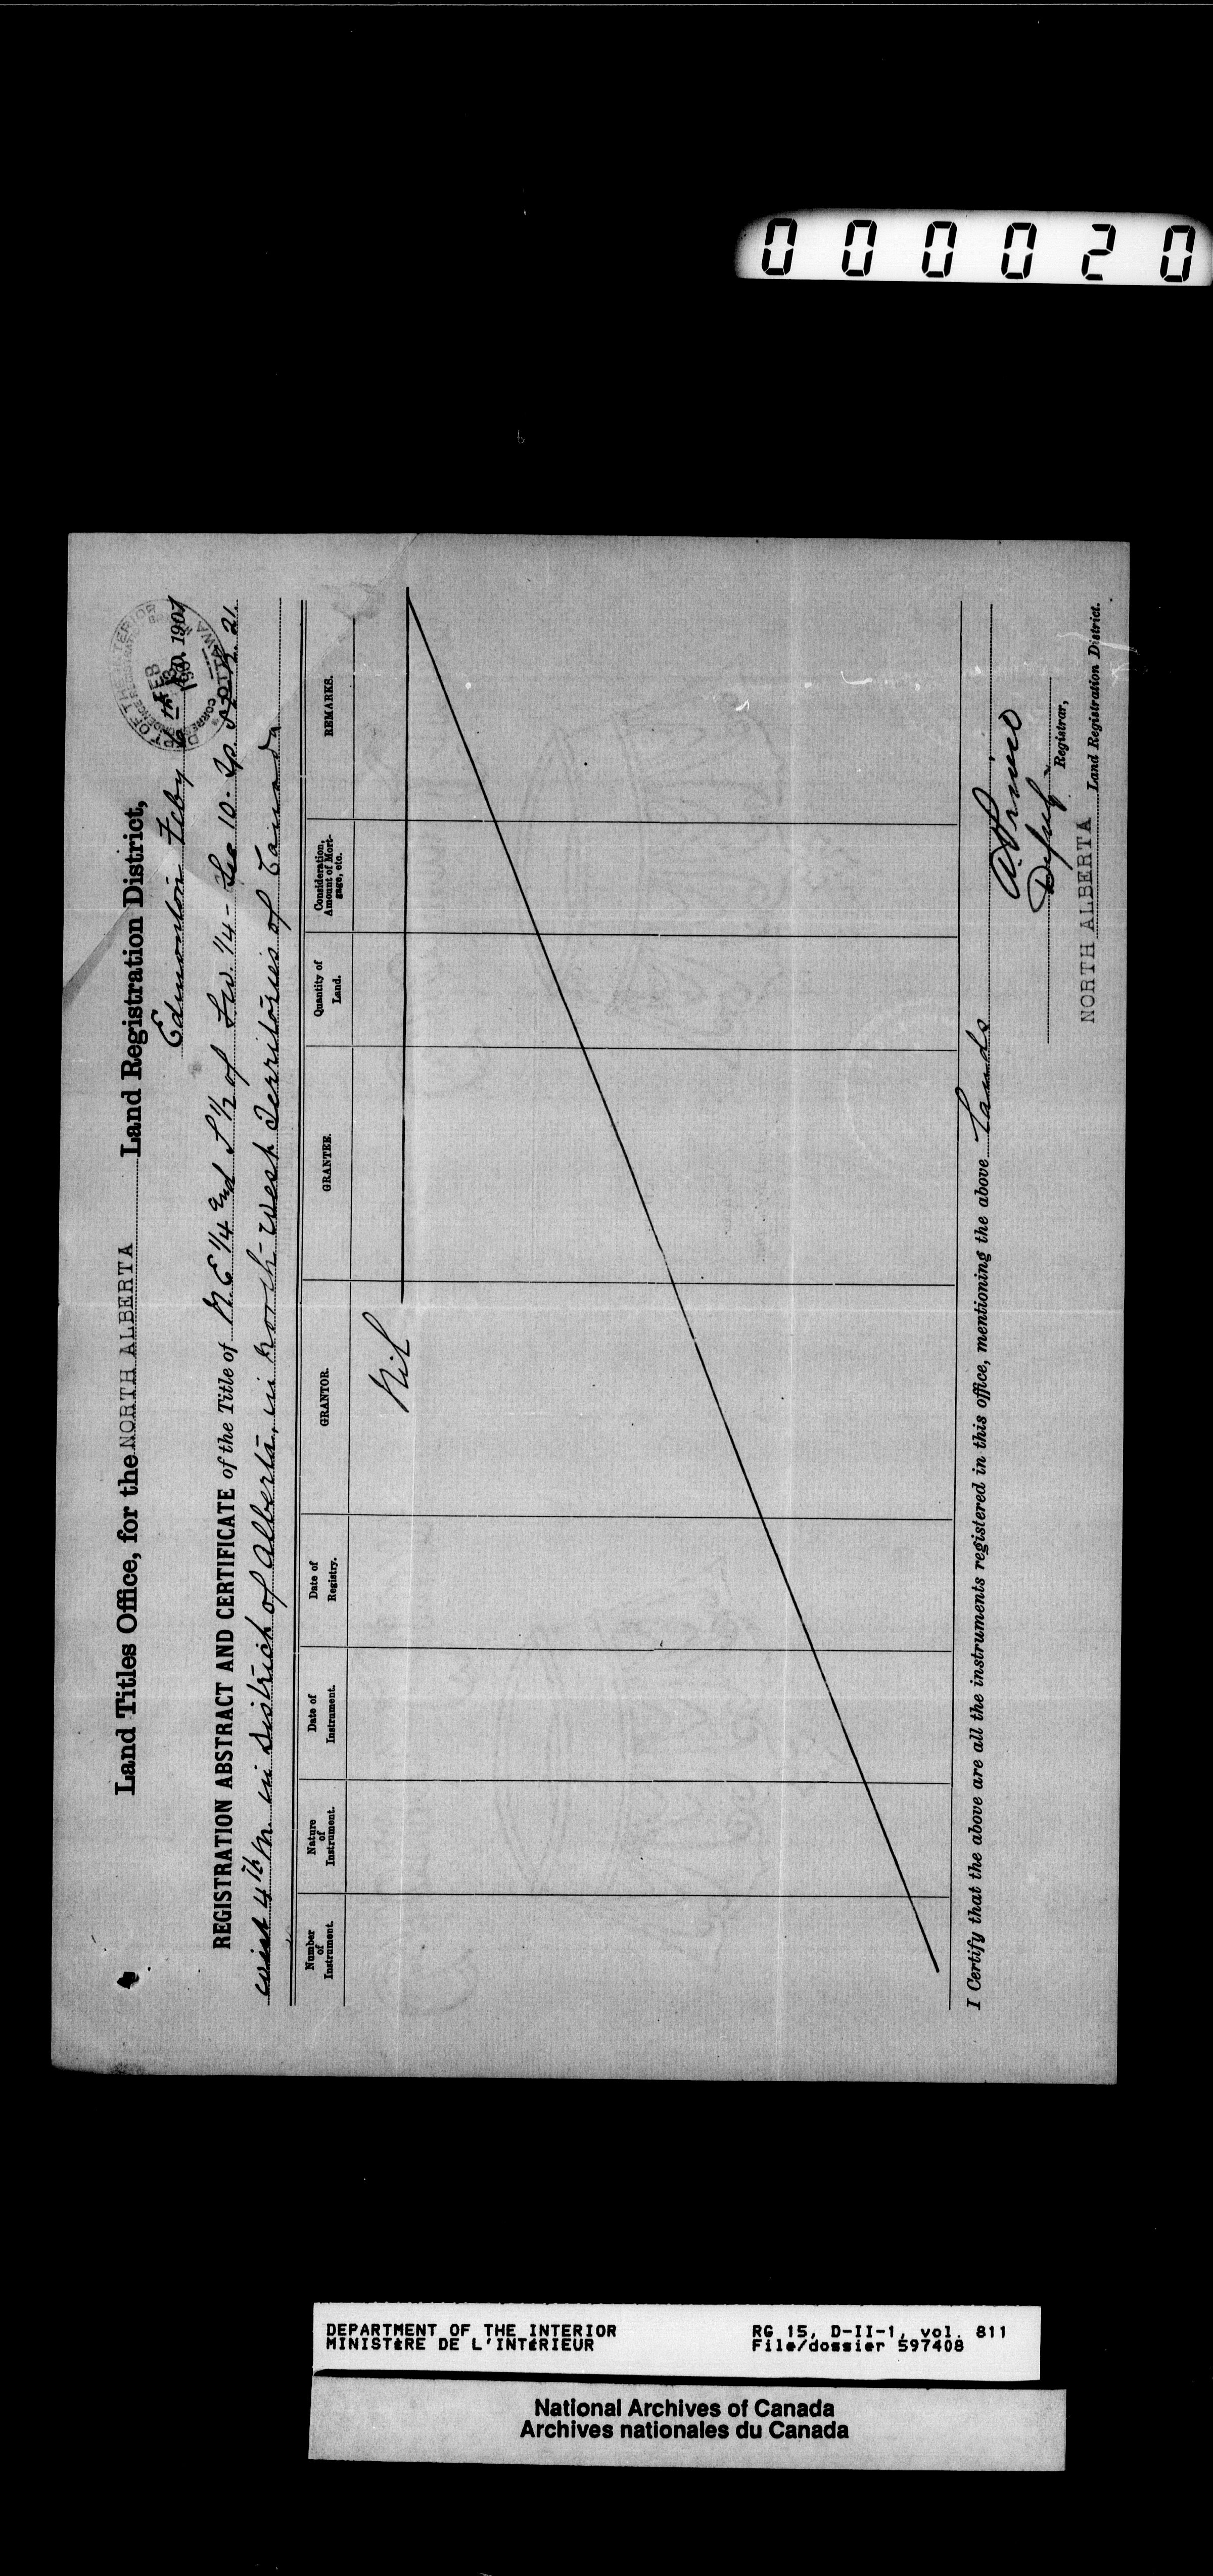 000020
Land Titles Office, for the NORTH ALBERTA Land Registration District,
Edmonton Feby 6th A.D. 1901
DEPT OF THE INTERIOR
FEB
1901
OTTAWA
REGISTRATION ABSTRACT AND CERTIFICATE of the Title of N.E 1/4 and S 1/2 of S.W. 1/4 - Sec 10 - Tp
west 4th M. in District of Alberta, in North-West Territories of Canada
Number of Instrument.
Nature of Instrument.
Date of Instrument.
Date of Registry.
GRANTOR.
GRANTEE.
Quantity of Land.
Consideration, Amount of Mortgage, etc.
REMARKS.
Nil
I Certify that the above are all the instruments registered in this office, mentioning the above Lands
Deputy Registrar,
NORTH ALBERTA Land Registration District.
DEPARTMENT OF THE INTERIOR RG 15, D-II-1, vol. 811
MINISTÈRE DE L'INTÉRIEUR File/dossier 597408
National Archives of Canada
Archives nationales du Canada